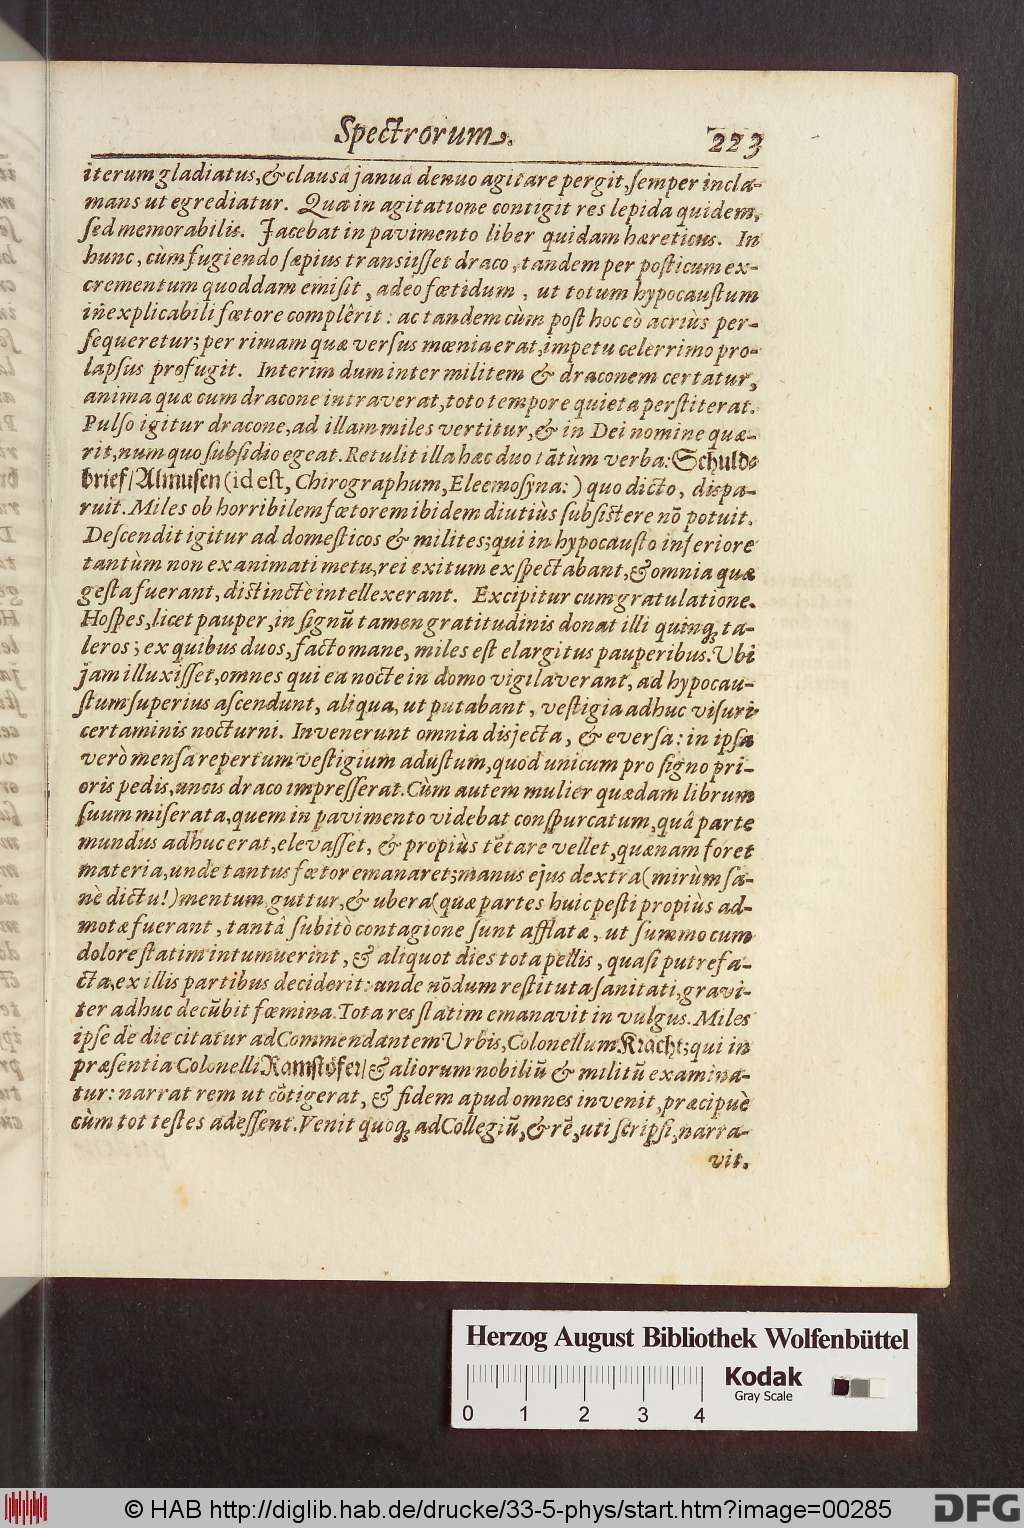 Spectrorum. 223
iterum gladiatus, & clausâ januâ denuo agitare pergit, semper incla-
mans ut egrediatur. Quæ in agitatione contigit res lepida quidem,
sed memorabilis. Jacebat in pavimento liber quidam hæreticus. In
hunc, cùm fugiendo sæpius transiisset draco, tandem per posticum ex-
crementum quoddam emisit, adeo fœtidum, ut totum hypocaustum
inexplicabili fœtore complêrit: ac tandem cùm post hoc eò acriùs per-
sequeretur; per rimam quæ versus mœnia erat, impetu celerrimo pro-
lapsus profugit. Interim dum inter militem & draconem certatur,
anima quæ cum dracone intraverat, toto tempore quieta perstiterat.
Pulso igitur dracone, ad illam miles vertitur, & in Dei nomine quæ-
rit, num quo subsidio egeat. Retulit illa hæc duo tãtùm verba: Schuld-
brief/ Almusen (id est, Chirographum, Eleemosyna:) quo dicto, dispa-
ruit. Miles ob horribilem fœtorem ibidem diutiùs subsistere nõ potuit.
Descendit igitur ad domesticos & milites; qui in hypocausto inferiore
tantùm non exanimati metu, rei exitum exspectabant, & omnia quæ
gesta fuerant, distinctè intellexerant. Excipitur cum gratulatione.
Hospes, licet pauper, in signũ tamen gratitudinis donat illi quinq; ta-
leros; ex quibus duos, facto mane, miles est elargitus pauperibus. Ubi
jam illuxisset, omnes qui ea nocte in domo vigilaverant, ad hypocau-
stum superius ascendunt, aliqua, ut putabant, vestigia adhuc visuri
certaminis nocturni. Invenerunt omnia disjecta, & eversa: in ipsa
verò mensa repertum vestigium adustum, quod unicum pro signo pri-
oris pedis, uncis draco impresserat. Cùm autem mulier quædam librum
suum miserata, quem in pavimento videbat conspurcatum, quâ parte
mundus adhuc erat, elevasset, & propiùs tẽtare vellet, quænam foret
materia, unde tantus fœtor emanaret; manus ejus dextra (mirùm sa-
nè dictu!) mentum, guttur, & ubera (quæ partes huic pesti propiùs ad-
motæ fuerant, tantâ subitò contagione sunt afflatæ, ut summo cum
dolore statim intumuerint, & aliquot dies tota pellis, quasi putrefa-
cta, ex illis partibus deciderit: unde nõdum restituta sanitati, gravi-
ter adhuc decũbit fœmina. Tota res statim emanavit in vulgus. Miles
ipse de die citatur ad Commendantem Urbis, Colonellum Kracht; qui in
præsentia Colonelli Ramstöfer/ & aliorum nobiliũ & militũ examina-
tur: narrat rem ut cõtigerat, & fidem apud omnes invenit, præcipuè
cùm tot testes adessent. Venit quoq; ad Collegiũ, & rẽ, uti scripsi, narra-
vit.
Herzog August Bibliothek Wolfenbüttel
Kodak
Gray Scale
0 1 2 3 4
© HAB http://diglib.hab.de/drucke/33-5-phys/start.htm?image=00285
DFG